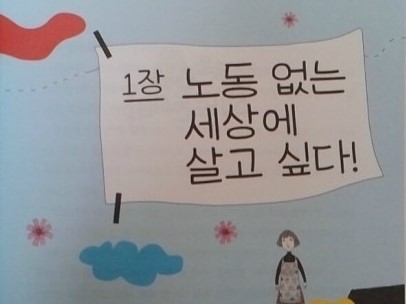 1장 노동 없는
세상에
살고 싶다!